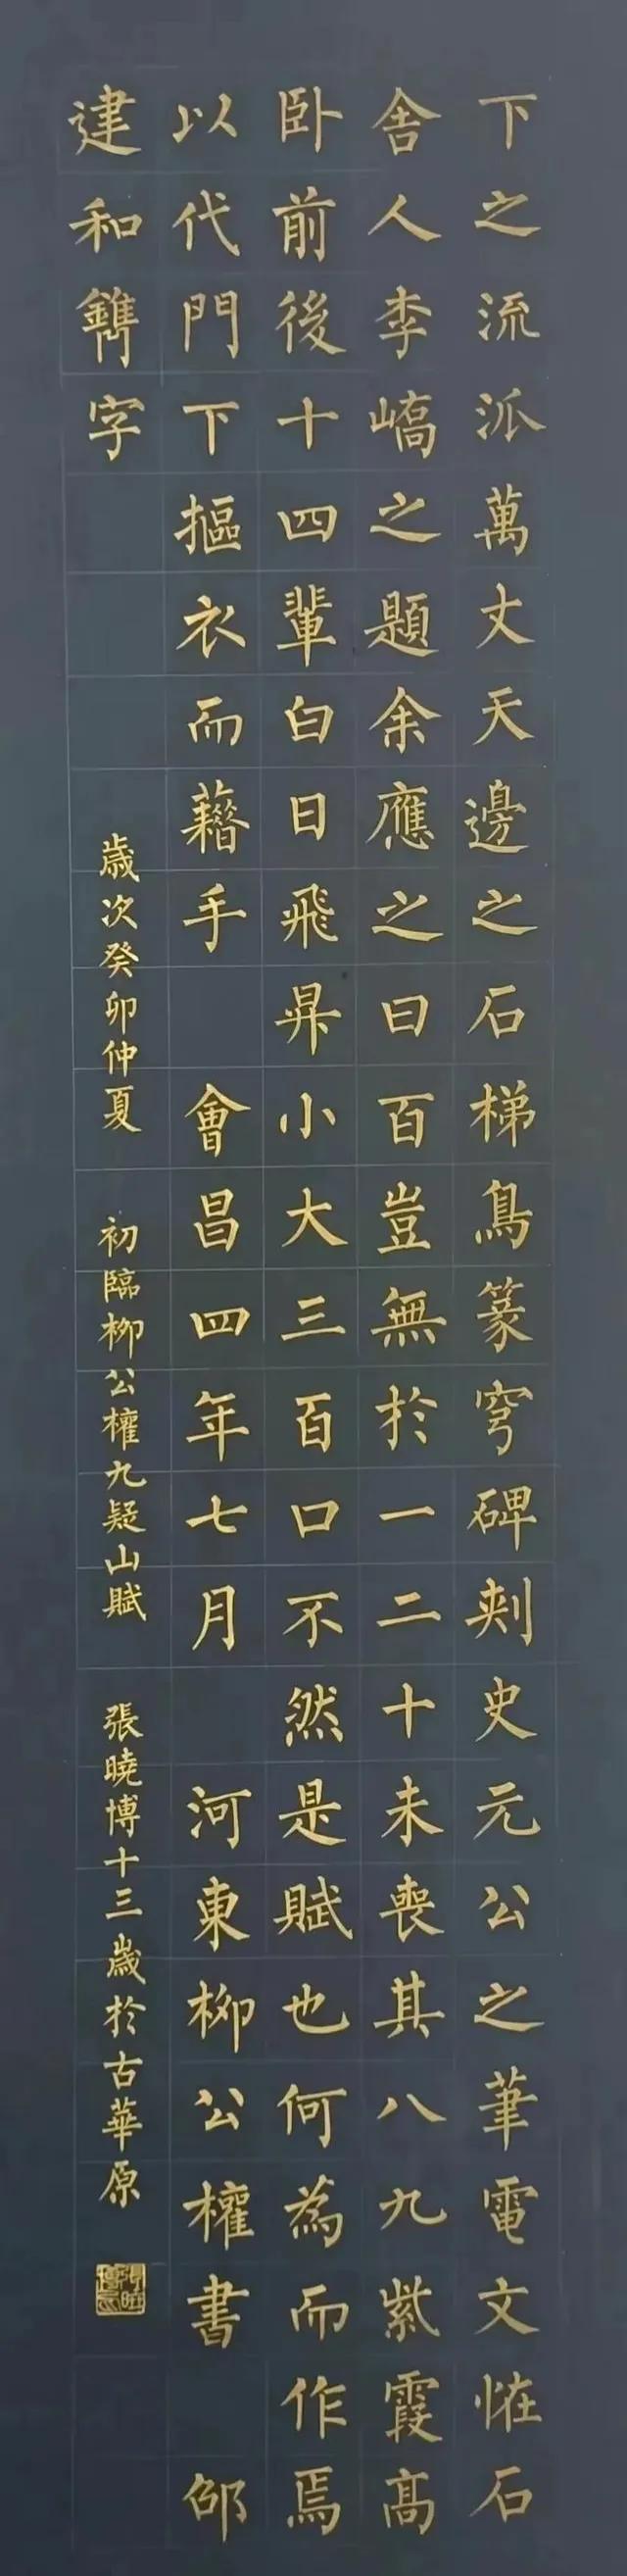 下之流派萬丈天邊之石梯鳥篆穹碑刾史元公之筆電文恠石
舎人李嶠之題余應之曰百豈無於一二十未喪其八九紫霞高
卧前後十四輩白日飛昇小大三百口不然是賦也何為而作焉
以代門下摳衣而藉手 會昌四年七月 河東柳公權書 邵
建和鐫字
歲次癸卯仲夏 初臨柳公權九疑山賦 張曉博十三歲於古華原